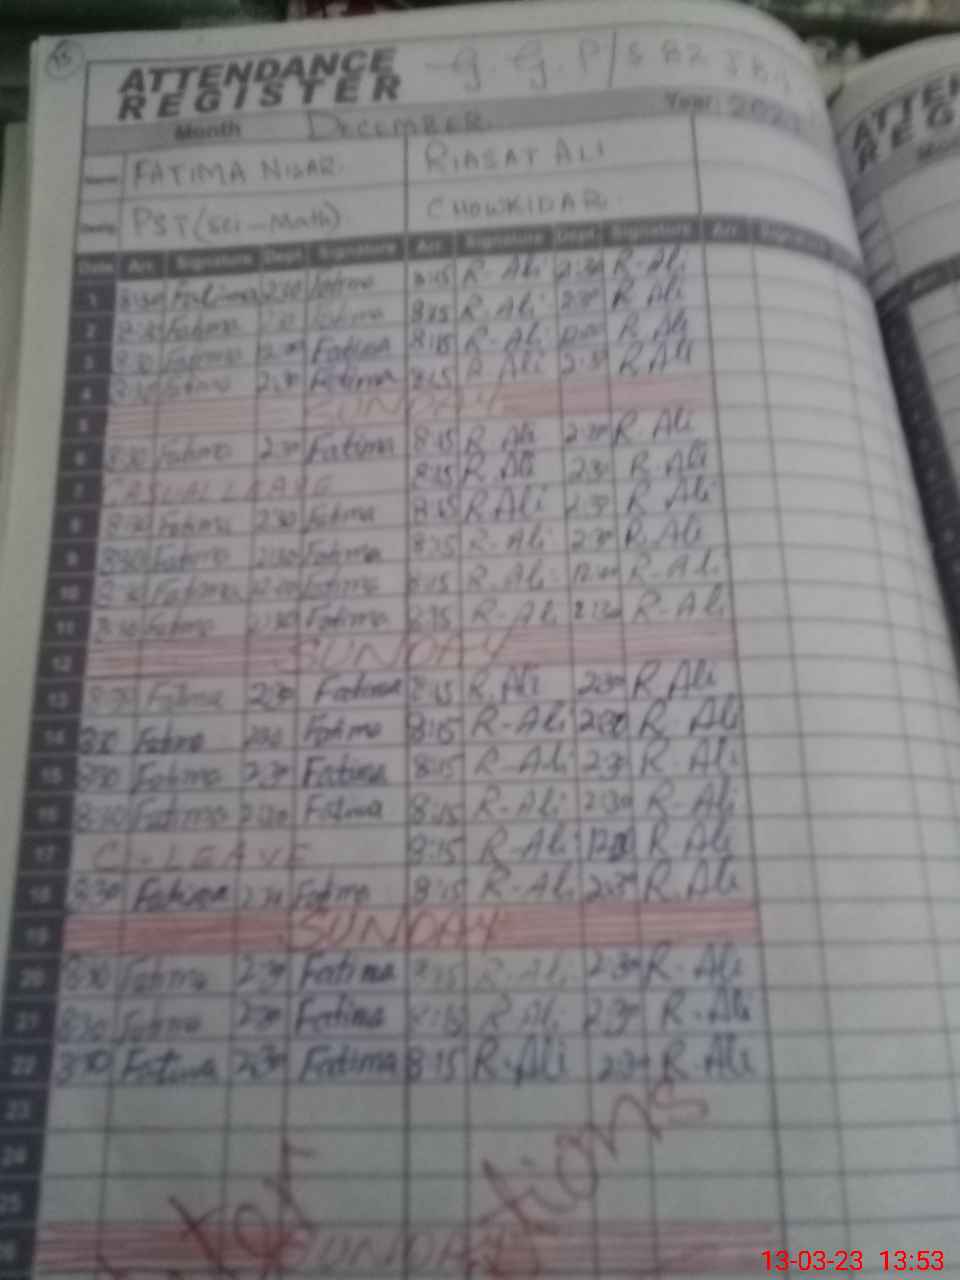 15
ATTENDANCE
REGISTER
G. G. P/S 82
Month DECEMBER Year:
Name FATIMA NISAR. RIASAT ALI
PST (Sci-Math) CHOWKIDAR.
Date Arr. Signature Dept. Signature Arr. Signature Dept. Signature Arr. Signature
1 8:30 Fatima 2:30 Fatima 8:15 R-Ali 2:30 R-Ali
2 8:30 Fatima Fatima 8:15 R-Ali 2:30 R Ali
3 8:30 Fatima Fatima 8:15 R-Ali R Ali
4 8:30 Fatima 2:30 Fatima 8:15 R Ali 2:30 R Ali
5 SUNDAY
6 8:30 Fatima 2:30 Fatima 8:15 R Ali 2:30 R. Ali
7 CASUAL LEAVE 8:15 R. Ali 2:30 R. Ali
8 8:30 Fatima 2:30 Fatima 8:15 R Ali 2:30 R Ali
9 8:30 Fatima 2:30 Fatima 8:15 R-Ali 2:30 R. Ali
10 8:30 Fatima 12:00 Fatima 8:15 R-Ali 12:00 R-Ali
11 8:30 Fatima 2:30 Fatima 8:15 R-Ali R-Ali
12 SUNDAY
13 8:30 Fatima 2:30 Fatima 8:15 R. Ali 2:30 R. Ali
14 8:30 Fatima 2:30 Fatima 8:15 R-Ali R. Ali
15 8:30 Fatima 2:30 Fatima 8:15 R-Ali 2:30 R-Ali
16 8:30 Fatima 2:30 Fatima 8:15 R-Ali 2:30 R-Ali
17 C-LEAVE 8:15 R-Ali R. Ali
18 8:30 Fatima 2:30 Fatima 8:15 R-Ali 2:30 R. Ali
19 SUNDAY
20 8:30 Fatima 2:30 Fatima 8:15 R-Ali 2:30 R-Ali
21 8:30 Fatima 2:30 Fatima 8:15 R-Ali 2:30 R-Ali
22 8:30 Fatima 2:30 Fatima 8:15 R-Ali 2:30 R-Ali
23
24
25
26 SUNDAY
13-03-23 13:53